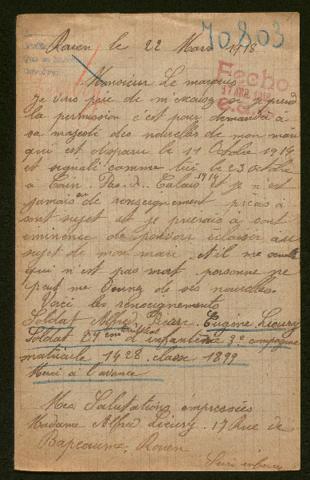 70803
Rouen le 22 Mars 1918
Fecho
17 AVR. 1918
Monsieur Le marquis
je vous prie de m'excuse si je prend
la permission c'est pour demandé à
sa majesté des nouvelles de mon mari
qui est disparu le 11 Octobre 1914
et signalé comme tué le 23 octobre
1914
à Pas-d. Calais et je n'ai
jamais eu renseignement précis à
cet sujet et je prierais à sont
eminence de pouvoir éclairé au
sujet de mon mari
qui n'est pas mort personne ne
peut me donner de ses nouvelles.
Voici les renseignements
Soldat Alfred Pierre Eugène Lieury
Soldat d'infanterie 3e compagnie
matricule 1428 classe 1899
Merci à l'avance
Mes Salutations empressées
Madame Alfred Lieury. 17 Rue de
Bapeaume, Rouen